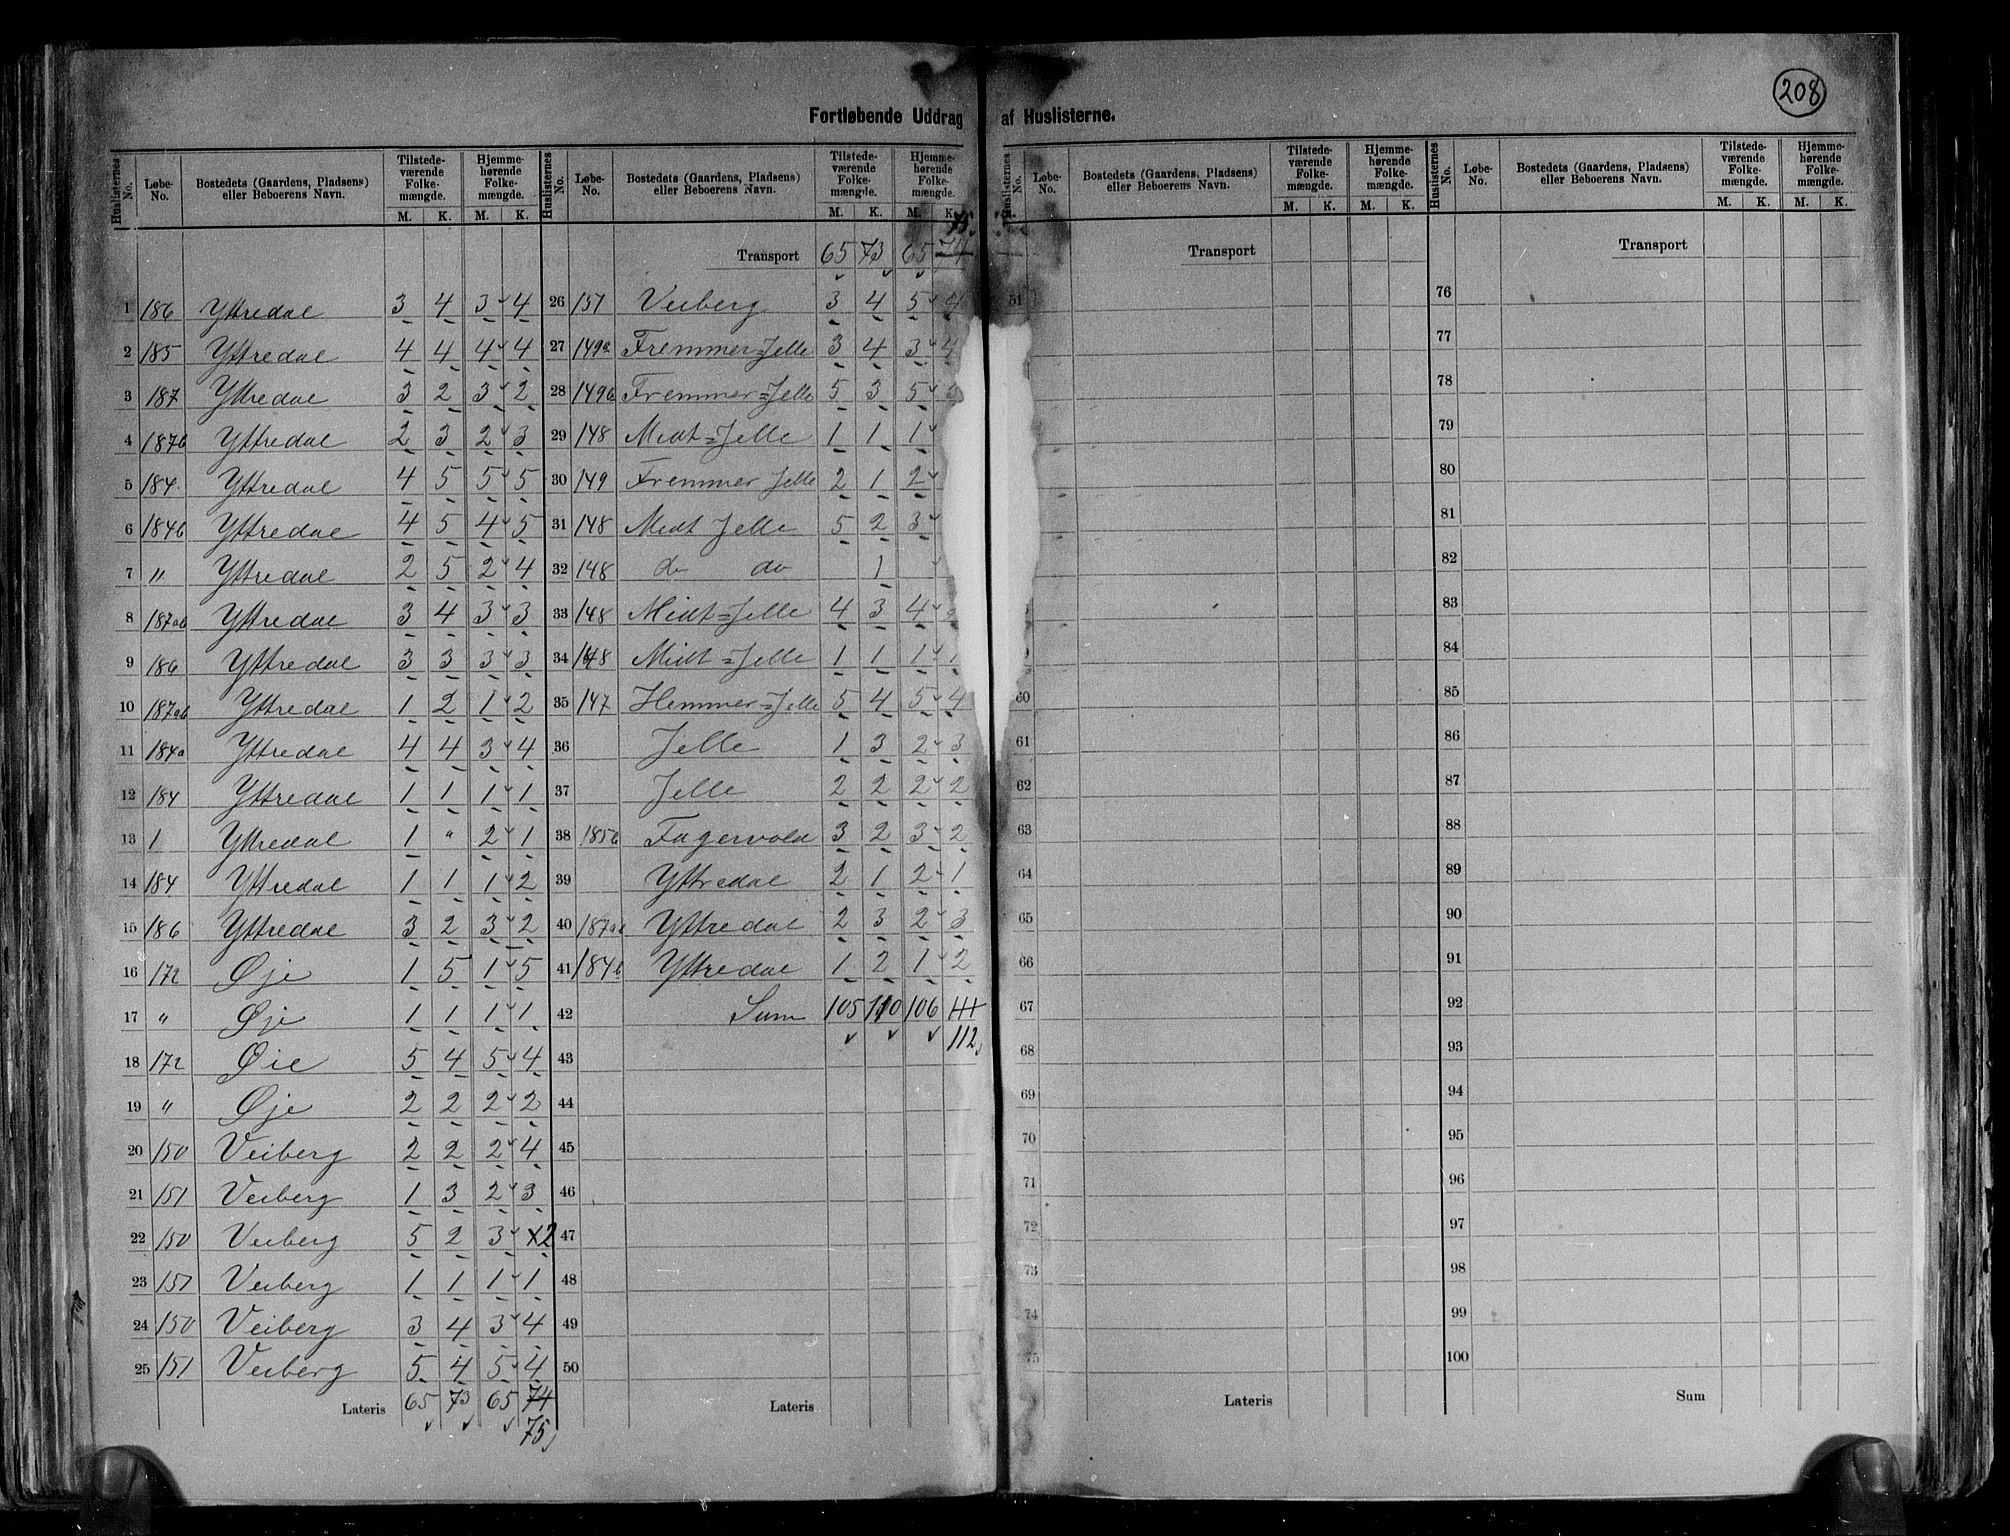 208
Fortløbende Uddrag af Huslisterne.
Huslisternes No. Løbe-No. Bostedets (Gaardens, Pladsens) eller Beboerens Navn. Tilstede-værende Folke-mængde. M. K. Hjemme-hørende Folke-mængde. M. K.
1 186 Yttredal 3 4 3 4
2 185 Yttredal 4 4 4 4
3 187 Yttredal 3 2 3 2
4 187b Yttredal 2 3 2 3
5 184. Yttredal 4 5 5 5
6 184b Yttredal 4 5 4 5
7 " Yttredal 2 5 2 4
8 187ab Yttredal 3 4 3 3
9 186 Yttredal 3 3 3 3
10 187ab Yttredal 1 2 1 2
11 184a Yttredal 4 4 3 4
12 184 Yttredal 1 1 1 1
13 1 Yttredal 1 " 2 1
14 184 Yttredal 1 1 1 2
15 186 Yttredal 3 2 3 2
16 172 Øje 1 5 1 5
17 " Øje 1 1 1 1
18 172 Øie 5 4 5 4
19 " Øje 2 2 2 2
20 150 Veiberg 2 2 2 4
21 151 Veiberg 1 3 2 3
22 150 Veiberg 5 2 3 2
23 151 Veiberg 1 1 1 1
24 150 Veiberg 3 4 3 4
25 151 Veiberg 5 4 5 4
Lateris 65 73 65 74
75
Huslisternes No. Løbe-No. Bostedets (Gaardens, Pladsens) eller Beboerens Navn. Tilstede-værende Folke-mængde. M. K. Hjemme-hørende Folke-mængde. M. K.
75.
Transport 65 73 65 74
26 151 Veiberg 3 4 5 4
27 149a Fremmer=Jelle 3 4 3 4
28 149b Fremmer=Jelle 5 3 5
29 148 Midt=Jelle 1 1 1
30 149 Fremmer Jelle 2 1 2
31 148 Midt Jelle 5 2 3
32 148 do do 1
33 148 Midt=Jelle 4 3 4
34 148 Midt=Jelle 1 1 1 1
35 147 Hemmer=Jelle 5 4 5 4
36 Jelle 1 3 2 3
37 Jelle 2 2 2 2
38 185b Fagervold 3 2 3 2
39 Yttredal 2 1 2 1
40 187ab Yttredal 2 3 2 3
41 184b Yttredal 1 2 1 2
42 Sum 105 110 106 111
43 112
44
45
46
47
48
49
50
Lateris
Huslisternes No. Løbe-No. Bostedets (Gaardens, Pladsens) eller Beboerens Navn. Tilstede-værende Folke-mængde. M. K. Hjemme-hørende Folke-mængde. M. K.
Transport
51
60
61
62
63
64
65
66
67
68
69
70
71
72
73
74
75
Lateris
Huslisternes No. Løbe-No. Bostedets (Gaardens, Pladsens) eller Beboerens Navn. Tilstede-værende Folke-mængde. M. K. Hjemme-hørende Folke-mængde. M. K.
Transport
76
77
78
79
80
81
82
83
84
85
86
87
88
89
90
91
92
93
94
95
96
97
98
99
100
Sum